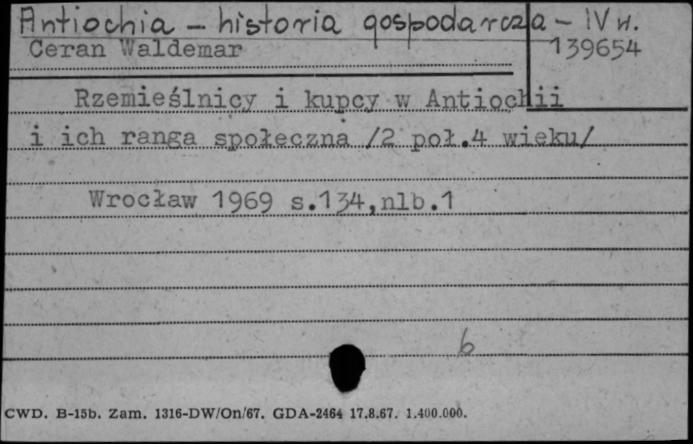 Antiochia - historia gospodarcza - IV w.
Ceran Waldemar 139654
Rzemieślnicy i kupcy w Antiochii
i ich ranga społeczna /2 poł.4 wieku/
Wrocław 1969 s.134,nlb.1
6
CWD. B-15b. Zam. 1316-DW/On/67. GDA-2464 17.8.67. 1.400.000.